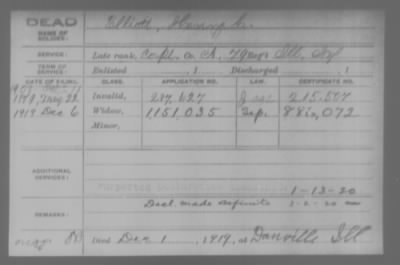 DEAD
NAME OF SOLDIER:
Elliott, Henry
SERVICE:
Late rank, Corpl. Co. A, 79 Reg't Ill. Inf
TERM OF SERVICE:
Enlisted , 1 Discharged , 1
DATE OF FILING. CLASS. APPLICATION NO. LAW. CERTIFICATE NO.
1879, May 22 Invalid, 297,627 215,507
1919 Dec 6 Widow, 1151,035 Sep. 886,072
Minor,
ADDITIONAL SERVICES:
1-13-20
Decl. made definite 1-2-20
REMARKS:
Died Dec 1, 1919, at Danville Ill